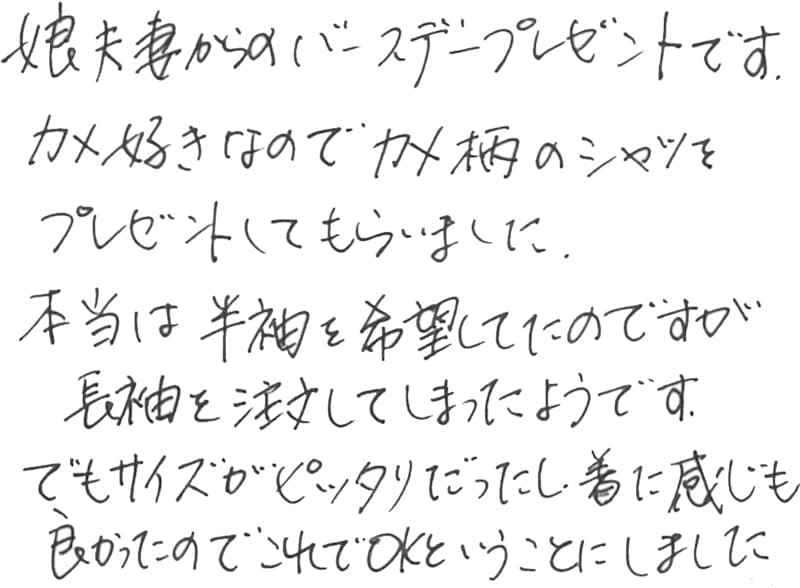 娘夫妻からのバースデープレゼントです.
カメ好きなのでカメ柄のシャツを
プレゼントしてもらいました.
本当は半袖を希望してたのですが
長袖を注文してしまったようです.
でもサイズがピッタリだったし着た感じも
良かったのでこれでOKということにしました